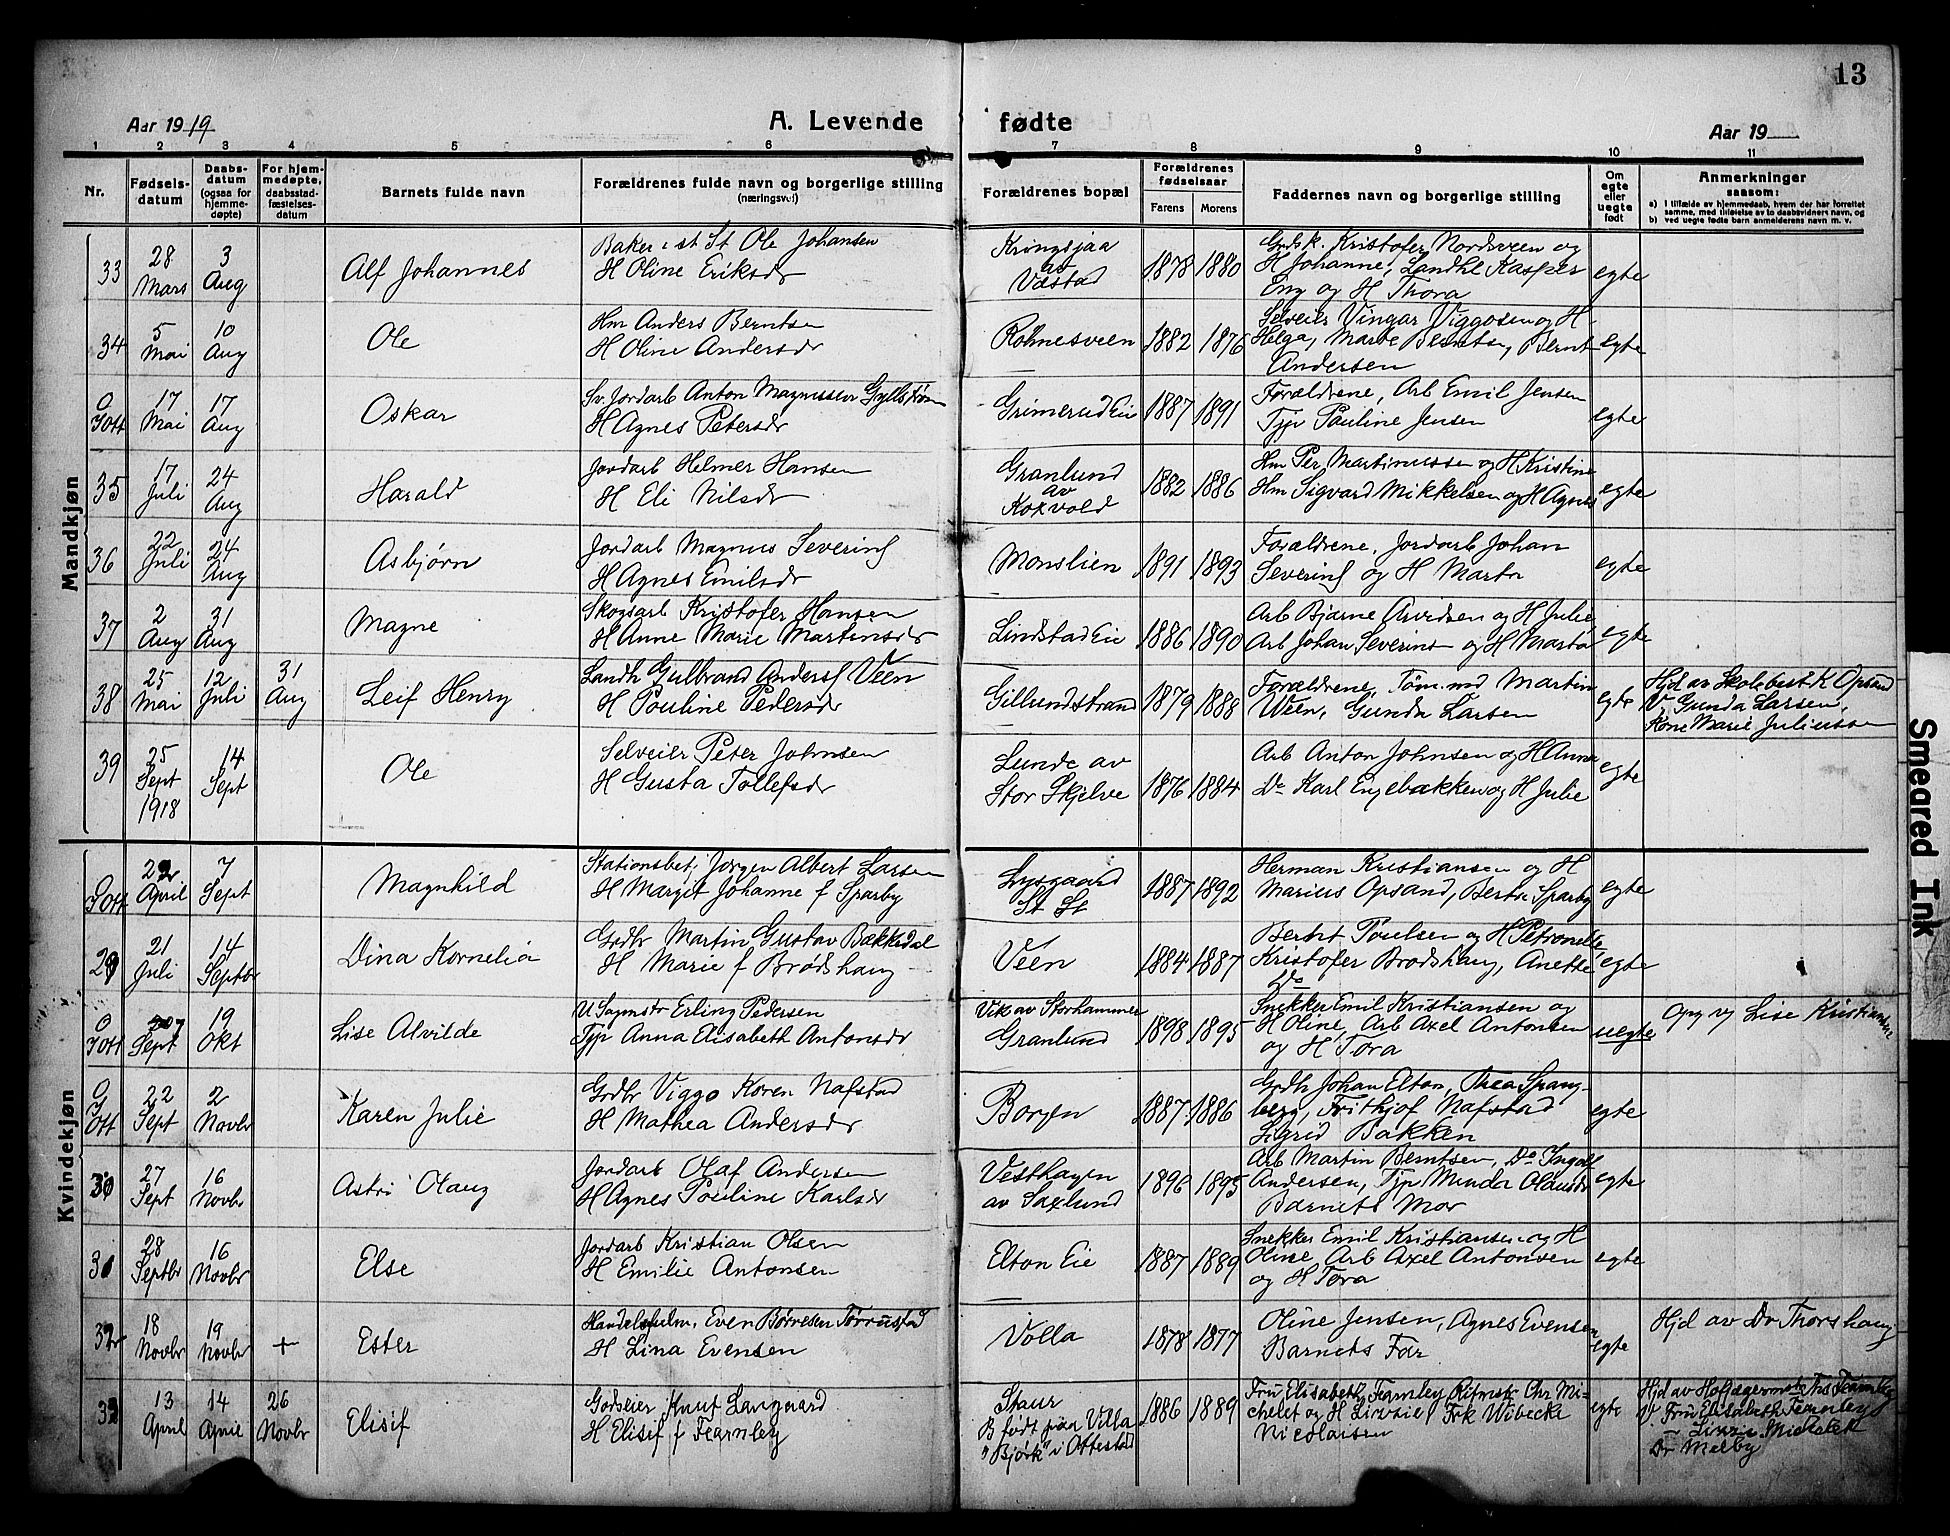 13
Aar 1919
A. Levende fødte
Aar 19
1 2 3 4 5 6 7 8 9 10 11
Nr.
Fødsels-
datum
Daabs-
datum
(ogsaa for
hjemme-
døpte)
For hjem-
medøpte,
daabsstad-
fæstelses-
datum
Barnets fulde navn
Forældrenes fulde navn og borgerlige stilling
(næringsvei)
Forældrenes bopæl
Forældrenes
fødselsaar
Farens Morens
Faddernes navn og borgerlige stilling
Om
egte
eller
uegte
født
Anmerkninger
saasom:
a) I tilfælde av hjemmedaab, hvem der har forrettet
samme, med tilføielse av to daabsvidners navn, og
b) ved uegte fødte barn anmelderens navn m. v.
Mandkjøn
33
28
Mars
3
Aug
Alf Johannes
Baker i st St Ole Johansen
H Oline Eriksdr
Kringsjaa
av
Vdstad
1878 1880
Grdsk. Kristofer Nordsveen og
H Johanne, Landhl Kasper
Eng og H Thora
egte
34
5
Mai
10
Aug
Ole
Hm Anders Berntsen
H Oline Andersdr
Rohnesveen
1882 1876
Selveier Vingar Viggosen og H
Helga, Marte Berntsen, Bernt
Andersen
egte
O
Gott
17
Mai
17
Aug
Oskar
Sv. Jordarb Anton Magnussen Gyllstrøm
H Agnes Petersdr
Grimerud Eie
1887 1891
Forældrene, Arb Emil Jensen
Typ Pauline Jensen
egte
35
17
Juli
24
Aug
Harald
Jordarb Helmer Hansen
H Eli Nilsdr
Granlund
av
Kokvold
1882 1886
Hm Per Martinussen og H Kristine
Hm Sigvard Mikkelsen og H Agnes
egte
36
22
Juli
24
Aug
Asbjørn
Jordarb Magnus Severins
H Agnes Emilsdr
Monslien
1891 1893
Forældrene, Jordarb Johan
Severins og H Marta
egte
37
2
Aug
31
Aug
Magne
Skogsarb Kristofer Hansen
H Anne Marie Martinsdr
Lindstad Eie
1886 1890
Arb Bjarne Arvidsen og H Julie
Arb Johan Severins og H Marta
egte
38
25
Mai
12
Juli
31
Aug
Leif Henry
Landh Gulbrand Anders Veen
H Pouline Pedersdr
Gillundstrand
1879 1888
Forældrene, Tømmd Martin
Veen, Gunda Larsen
egte
Hjd av Skolebest K Opsand
V Gunda Larsen,
Kone Marie Juliussen
39
25
Sept
1918
14
Sept
Ole
Selveier Peter Johnsen
H Gusta Tollefsdr
Lunde av
Stor Skjelve
1876 1884
Arb Anton Johnsen og H Anna
Do Karl Engebakken og H Julie
egte
Kvindekjøn
Gott
22
April
7
Sept
Magnhild
Stationsbet. Jørgen Albert Larsen
H Margit Johanne f Sparby
Lysgaard
St St
1887 1892
Herman Kristiansen og H
Marius Opsand, Berte Sparby
egte
29
21
Juli
14
Septbr
Dina Kornelia
Grdbr Martin Gustav Bækkedal
H Marie f Brødshaug
Veen
1884 1887
Bernt Poulsen og H Petronelle
Kristofer Brødshaug, Anette
Do
egte
O
Gott
7
Sept
19
Okt
Lise Alvilde
U Sagmstr Erling Pedersen
Typ Anna Elisabeth Antonsdr
Vik av Storhammer
Granlund
1898 1895
Snekker Emil Kristiansen og
H Oline, Arb Axel Antonsen
og H Tora
uegte
Opg v Lise Kristiansen
O
Gott
22
Sept
2
Novbr
Karen Julie
Grdbr Viggo Koren Nafstad
H Mathea Andersdr
Borgen
1887 1886
Grdb Johan Elton, Thea Spang-
berg, Frithjof Nafstad
Sigrid Bakken
egte
30
27
Sept
16
Novbr
Astri Olaug
Jordarb Olaf Andersen
H Agnes Pouline Karlsdr
Vesthagen
av Saxlund
1896 1895
Arb Martin Berntsen, Do Ingolf
Andersen, Typ Minda Olausdr
Barnets Mor
egte
31
28
Septbr
16
Novbr
Else
Jordarb Kristian Olsen
H Emilie Antonsen
Elton Eie
1887 1889
Snekker Emil Kristiansen og H
Oline, Arb Axel Antonsen
og H Tora
egte
32
18
Novbr
19
Novbr
+
Ester
Handelsfulm. Even Børresen Tørrustad
H Lina Evensen
Volla
1878 1877
Oline Jensen, Agnes Evensen
Barnets Far
egte
Hjd av Dr Thorshaug
33
13
April
14
April
26
Novbr
Elisif
Godseier Knut Langaard
H Elisif f Fearnley
Staur
B født paa Villa
"Bjørk" i Ottestad
1886 1889
Fru Elisabeth Fearnley, Ritmstr Chr Mi-
chelet og H Lizzie, Frk Wibecke
Nicolaisen
egte
Hjd av Hofjægermstr Ths Fearnley
V. Fru Elisabeth Fearnley
" Lizzie Michelet
Dr Melby
Smeared Ink